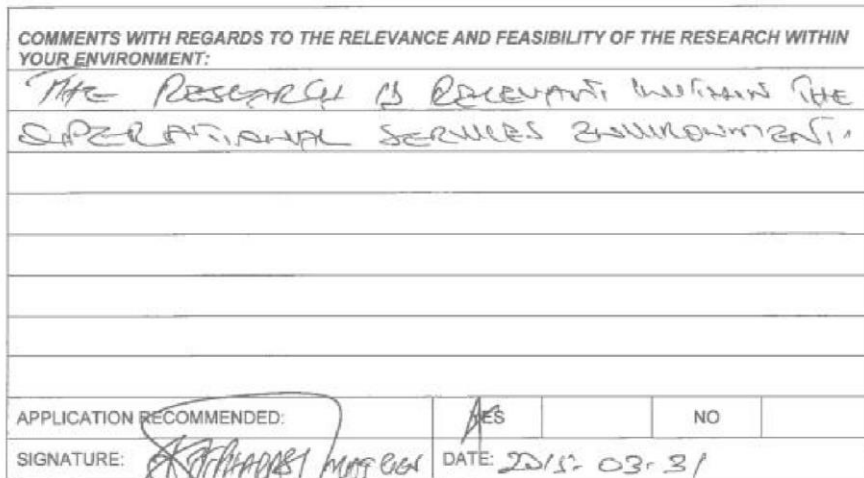 COMMENTS WITH REGARDS TO THE RELEVANCE AND FEASIBILITY OF THE RESEARCH WITHIN
YOUR ENVIRONMENT:
THE RESEARCH IS RELEVANT WITHIN THE
OPERATIONAL SERVICES ENVIRONMENT.
APPLICATION RECOMMENDED: YES NO
SIGNATURE: DATE: 2015-03-31